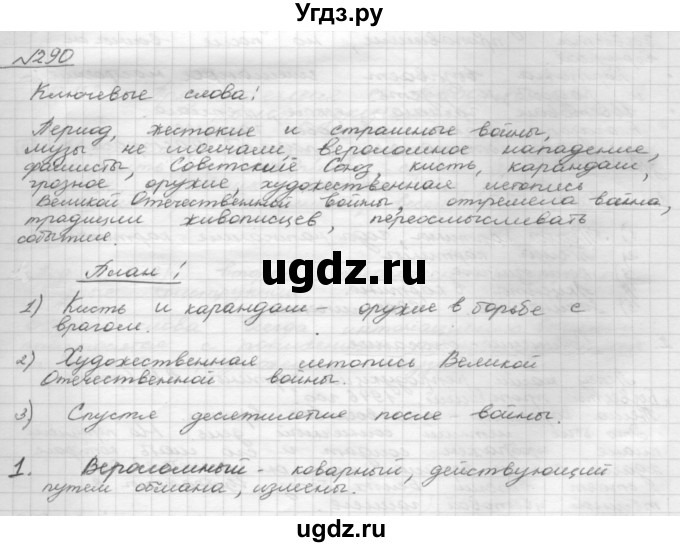 Угдз.ру
№290
Ключевые слова:
Период, жестокие и страшные войны,
музы не молчали, вероломное нападение,
фашисты, Советский Союз, кисть, карандаш,
грозное оружие, художественная летопись
Великой Отечественной войны, отгремела война,
традиции живописцев, переосмысливать
событие.
План:
1) Кисть и карандаш - оружие в борьбе с
врагом.
2) Художественная летопись Великой
Отечественной войны.
3) Спустя десятилетия после войны.
1. Вероломный - коварный, действующий
путем обмана, измены.
ugdz.ru
ugdz.ru